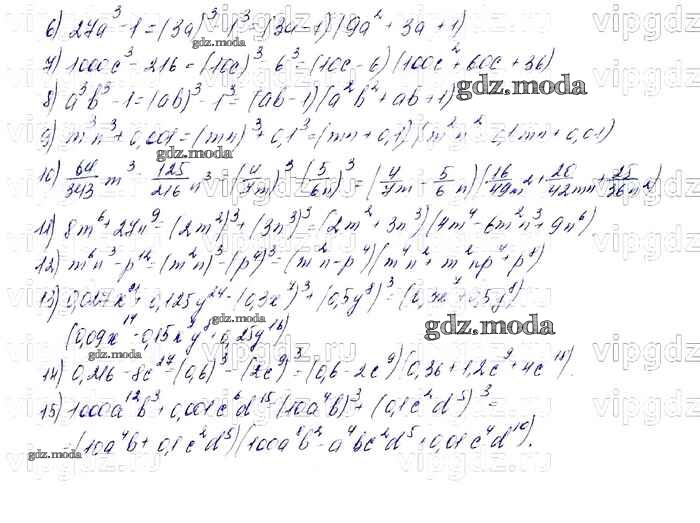 6) 27a³-1=(3a)³-1³=(3a-1)(9a²+3a+1)
7) 1000c³-216=(10c)³-6³=(10c-6)(100c²+60c+36)
8) a³b³-1=(ab)³-1³=(ab-1)(a²b²+ab+1)
9) m³n³+0,001=(mn)³+0,1³=(mn+0,1)(m²n²-0,1mn+0,01)
10) 64/343 m³-125/216 n³=(4/7 m)³-(5/6 n)³=(4/7 m-5/6 n)(16/49 m²+20/42 mn+25/36 n²)
11) 8m⁶+27n⁹=(2m²)³+(3n³)³=(2m²+3n³)(4m⁴-6m²n³+9n⁶)
12) m⁶n³-p¹²=(m²n)³-(p⁴)³=(m²n-p⁴)(m⁴n²+m²np⁴+p⁸)
13) 0,027x²¹+0,125y²⁴=(0,3x⁷)³+(0,5y⁸)³=(0,3x⁷+0,5y⁸)
(0,09x¹⁴-0,15x⁷y⁸+0,25y¹⁶)
14) 0,216-8c²⁷=(0,6)³-(2c⁹)³=(0,6-2c⁹)(0,36+1,2c⁹+4c¹⁸).
15) 1000a¹²b³+0,001c⁶d¹⁵=(10a⁴b)³+(0,1c²d⁵)³=
=(10a⁴b+0,1c²d⁵)(100a⁸b²-a⁴bc²d⁵+0,01c⁴d¹⁰).
gdz.moda
gdz.moda
gdz.moda
gdz.moda
gdz.moda
gdz.moda
vipgdz.ru